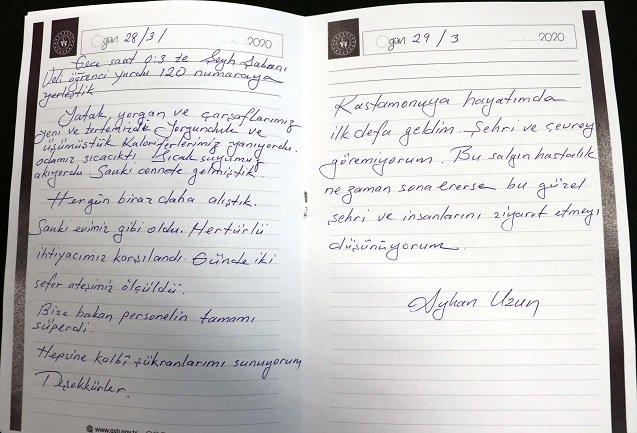 gün 28/3/ 2020
Gece saat 03 te Şeyh Şabanı
Veli öğrenci yurdu 120 numaraya
yerleştik.
Yatak, yorgan ve çarşaflarımız
yeni ve tertemizdi. Yorgunduk ve
üşümüştük Kaloriferlerimiz yanıyordu.
odamız sıcacıktı. Sıcak suyumuz
akıyordu Sanki cennete gelmiştik
Hergün biraz daha alıştık.
Sanki evimiz gibi oldu. Hertürlü
ihtiyacımız karşılandı. Günde iki
sefer ateşimiz ölçüldü.
Bize bakan personelin tamamı
süperdi.
Hepsine kalbî şükranlarımı sunuyorum
Teşekkürler.
www.gsb.gov.tr
gün 29/3 2020
Kastamonuya hayatımda
ilk defa geldim. Şehri ve çevreyi
göremiyorum. Bu salgın hastalık
ne zaman sona ererse bu güzel
şehri ve insanlarını ziyaret etmeyi
düşünüyorum.
Ayhan Uzun